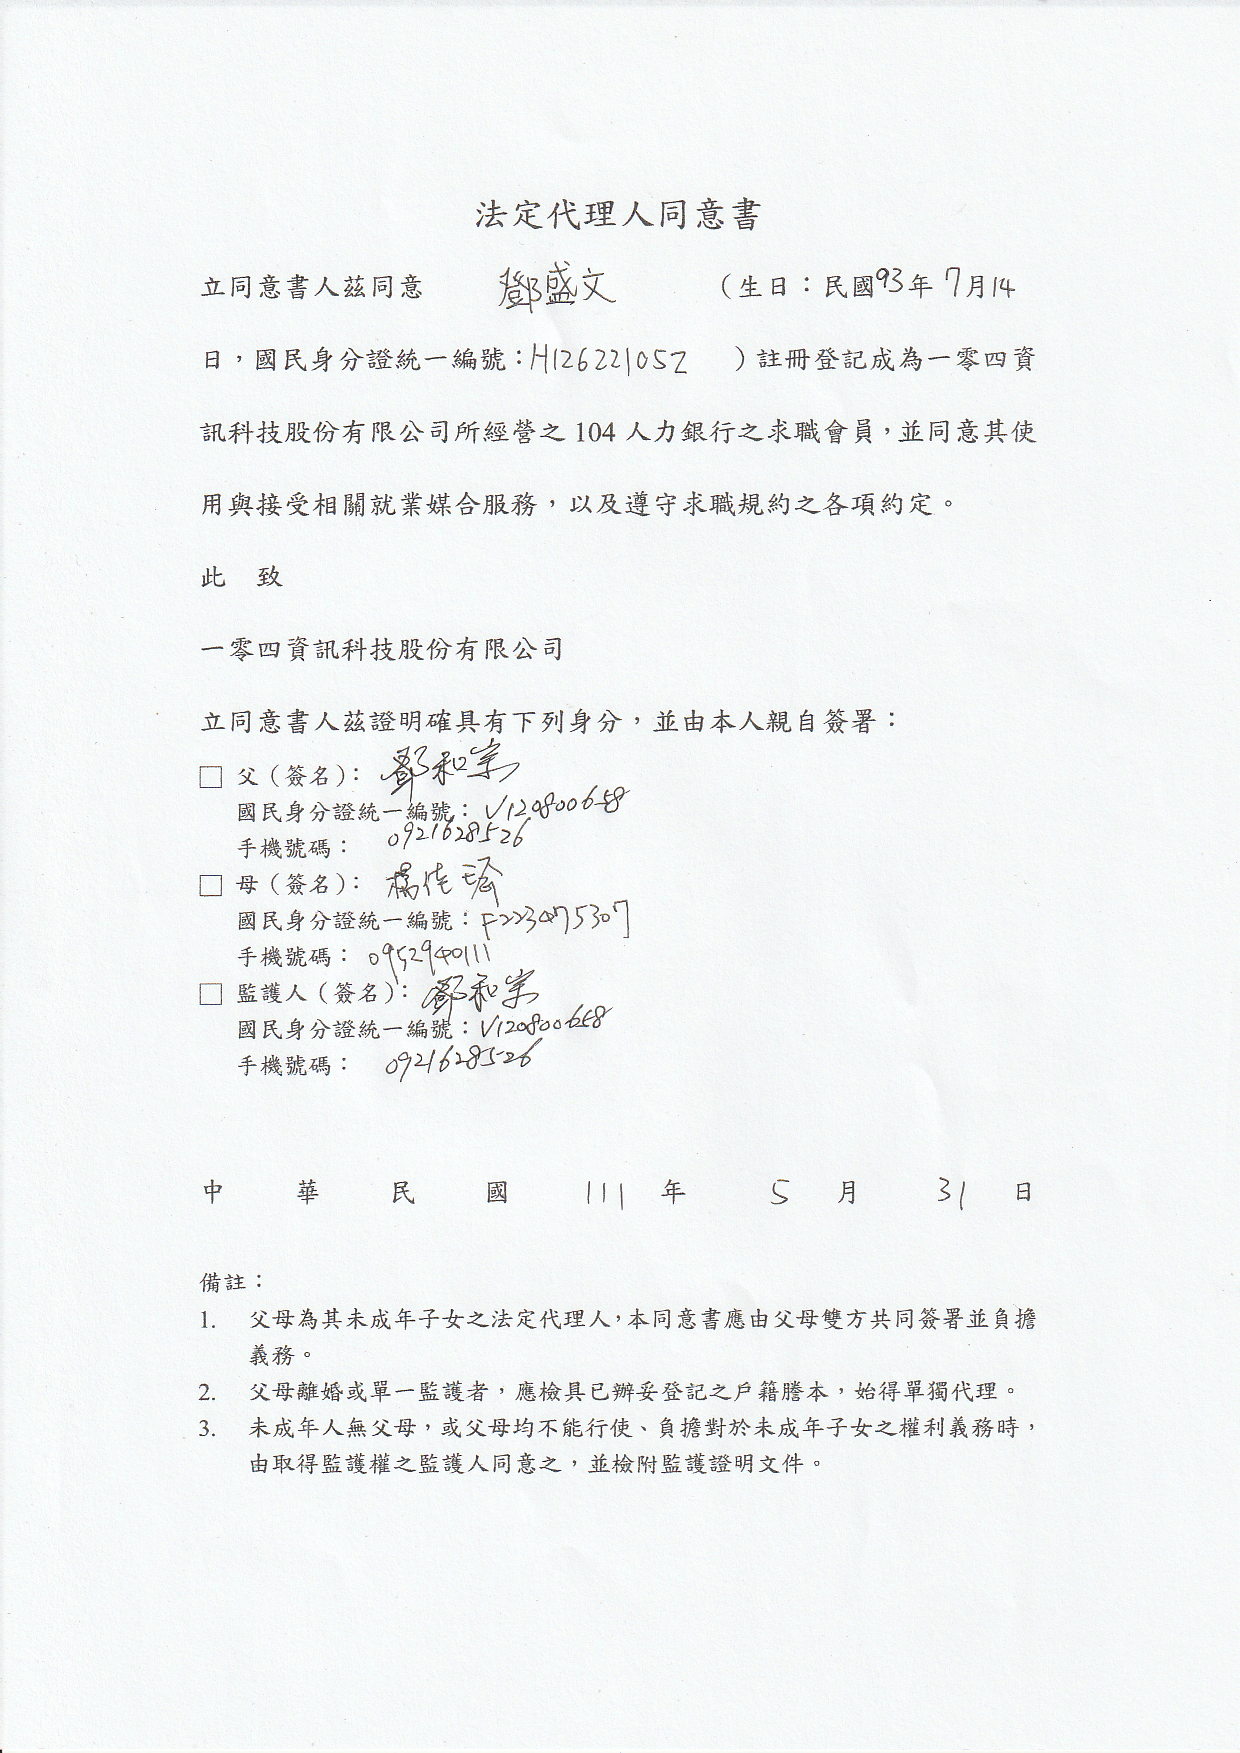 法定代理人同意書
立同意書人茲同意 鄧盛文 （生日：民國93年7月14
日，國民身分證統一編號：H126221052 ）註冊登記成為一零四資
訊科技股份有限公司所經營之 104 人力銀行之求職會員，並同意其使
用與接受相關就業媒合服務，以及遵守求職規約之各項約定。
此 致
一零四資訊科技股份有限公司
立同意書人茲證明確具有下列身分，並由本人親自簽署：
□ 父（簽名）： 鄧和宗
國民身分證統一編號：V120800658
手機號碼： 0921628526
□ 母（簽名）： 楊佳
國民身分證統一編號：F223475307
手機號碼： 0952940111
□ 監護人（簽名）：鄧和宗
國民身分證統一編號：V120800658
手機號碼： 0921628526
中 華 民 國 111 年 5 月 31 日
備註：
1. 父母為其未成年子女之法定代理人，本同意書應由父母雙方共同簽署並負擔
義務。
2. 父母離婚或單一監護者，應檢具已辦妥登記之戶籍謄本，始得單獨代理。
3. 未成年人無父母，或父母均不能行使、負擔對於未成年子女之權利義務時，
由取得監護權之監護人同意之，並檢附監護證明文件。